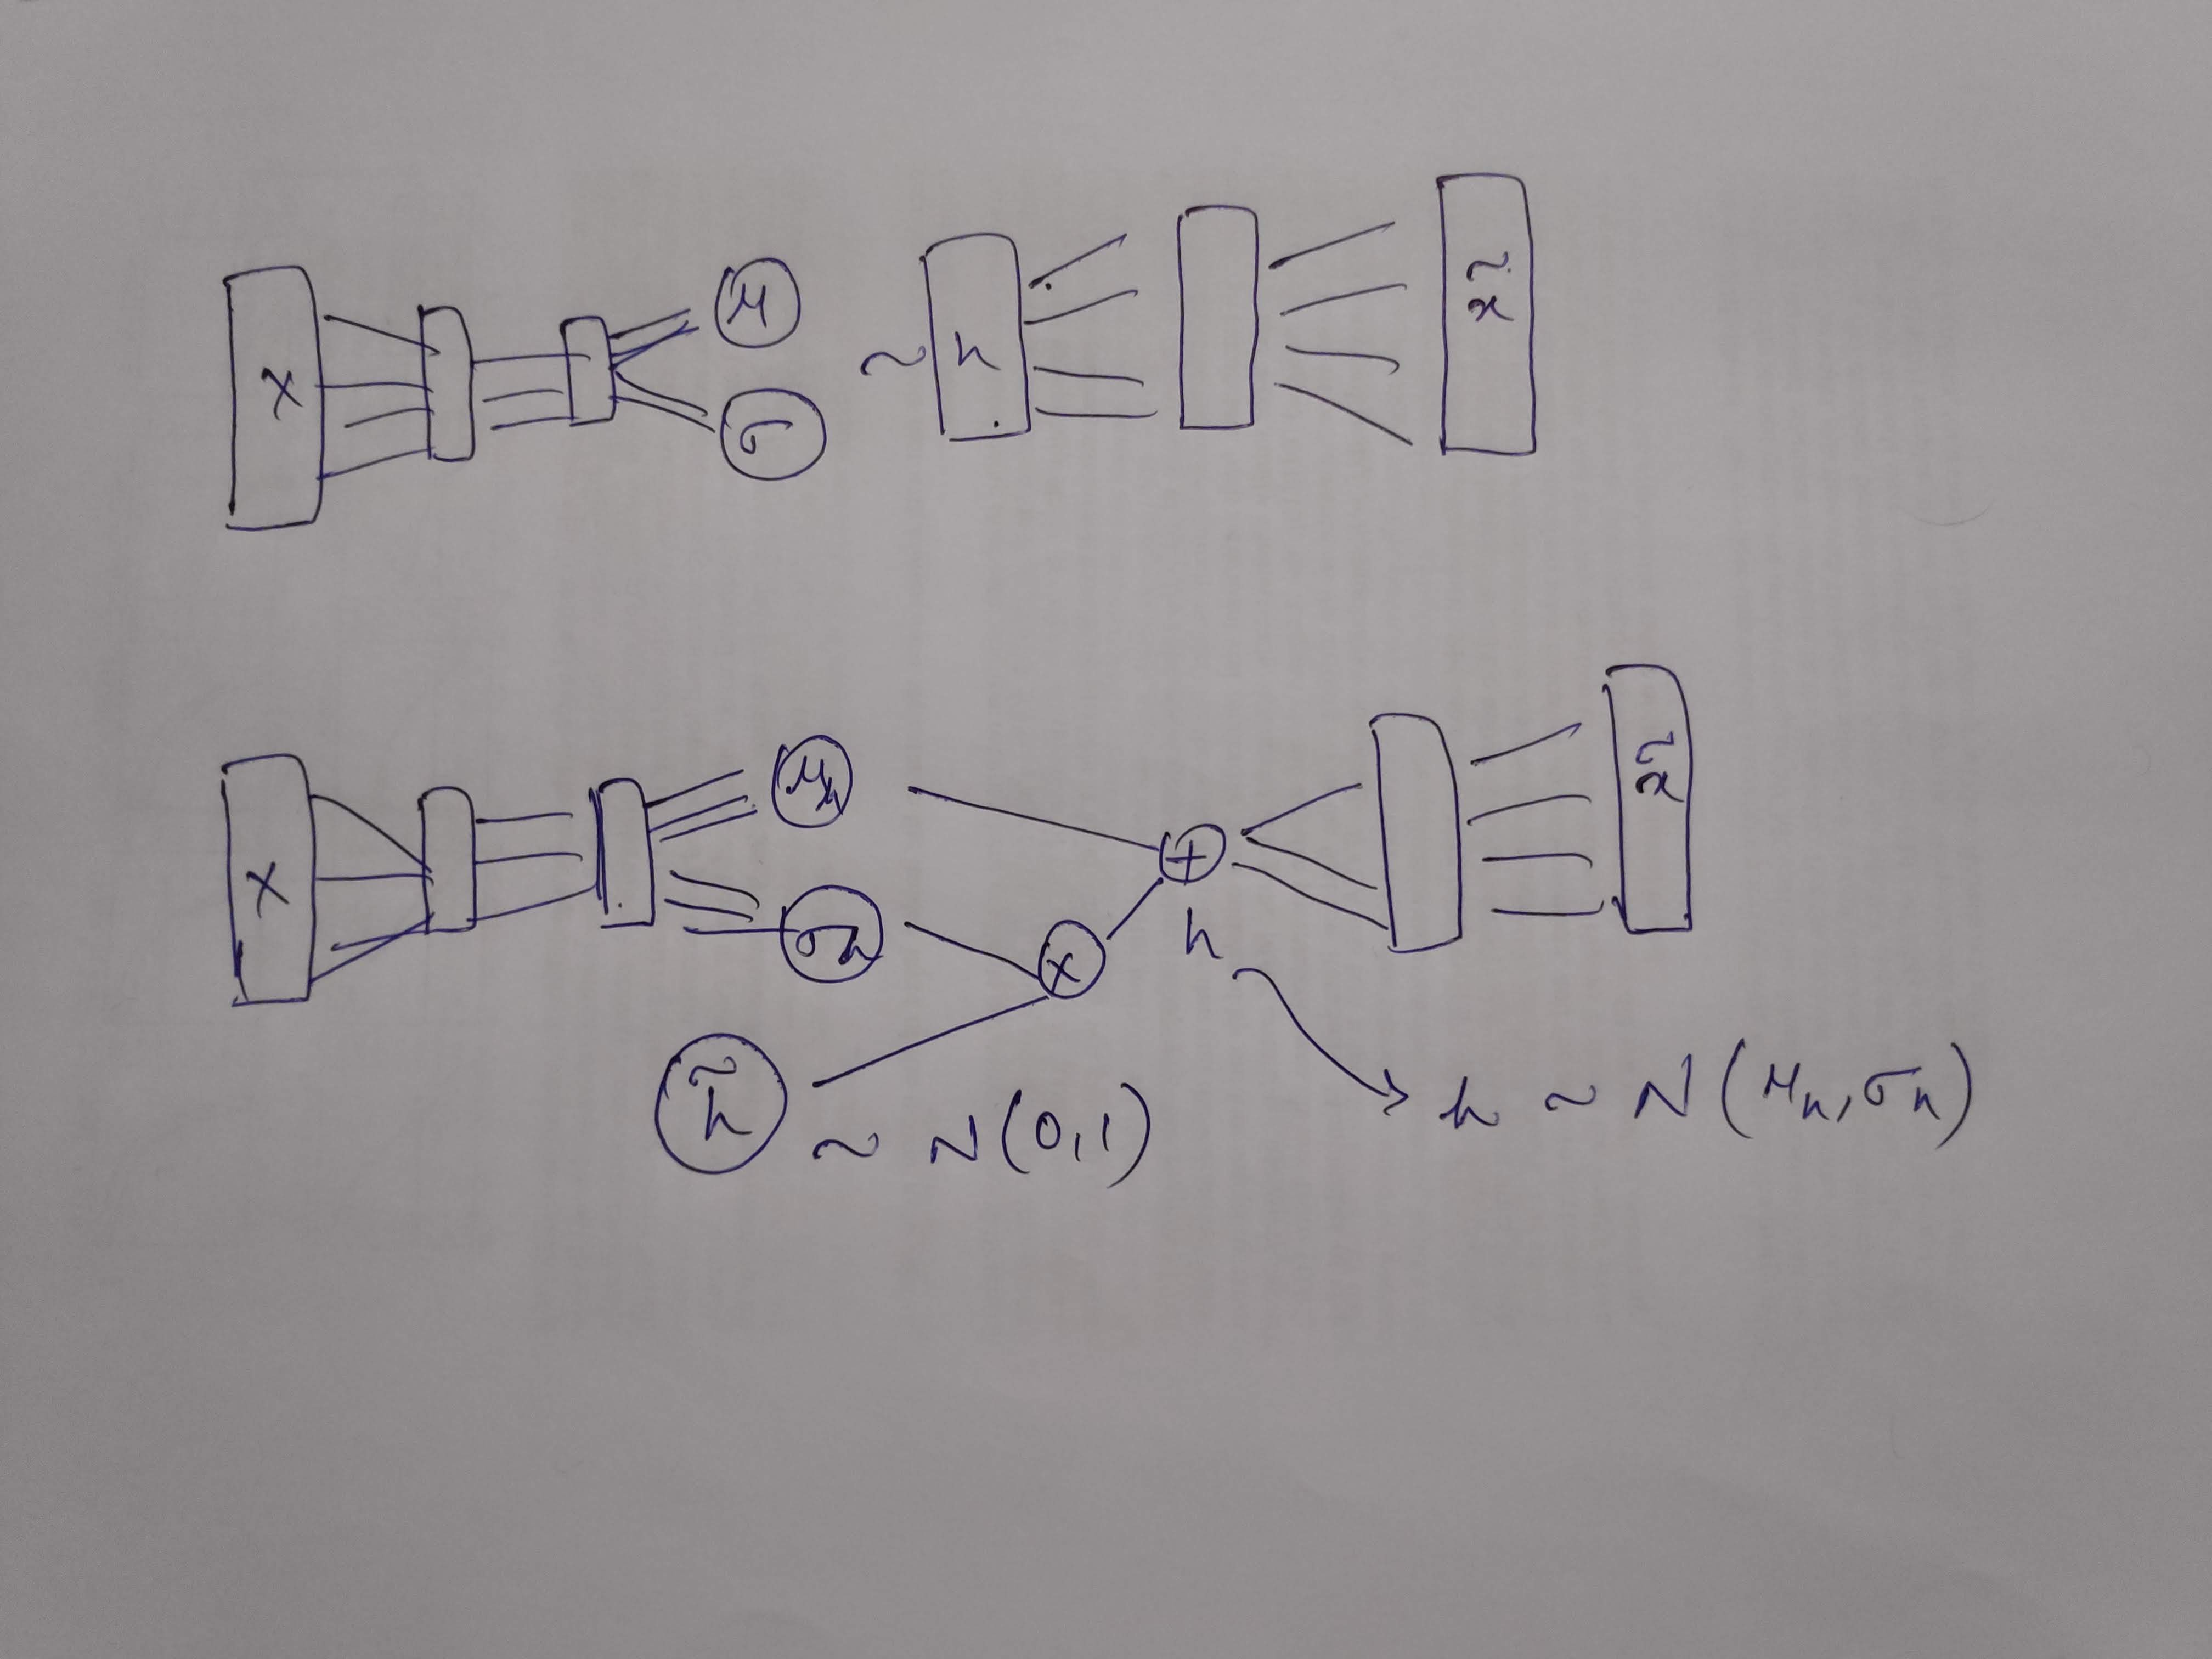 X μ σ ~ h x̃
X μₕ σₕ + x̃
× h
h̃ ~ N(0,1) h ~ N(μₕ, σₕ)